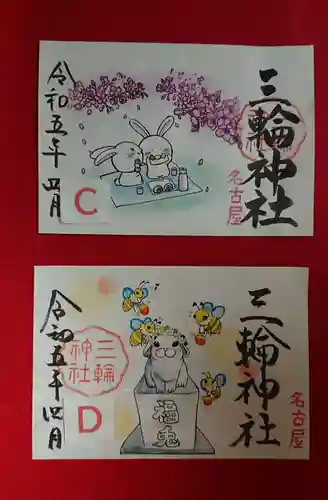 三輪神社
名古屋
令和五年 四月
C
三輪神社
名古屋
福兎
三輪
神社
令和五年 四月
D